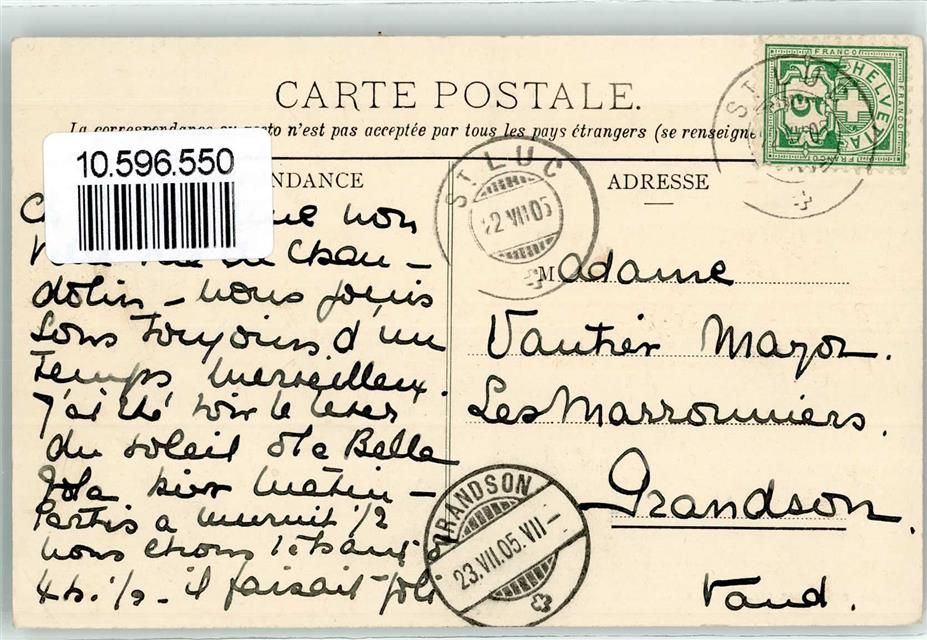 CARTE POSTALE.
La correspondance au recto n'est pas acceptée par tous les pays étrangers (se renseigne
10.596.550
NDANCE
ADRESSE
FRANCO
HELVETIA
FRANCO
5
FRANCO
ST LUC
22 VII 05
non
dolin – nous jouis
sons toujours d'un
temps merveilleux.
J'ai été voir le lever
du soleil à la Bella
Tola hier matin –
Partis à minuit 1/2
nous étions
4 h. 1/2 – il faisait joli
Madame
Vautier Mayor.
Les Marronniers.
Grandson.
Vaud.
GRANDSON.
23.VII.05.VII–